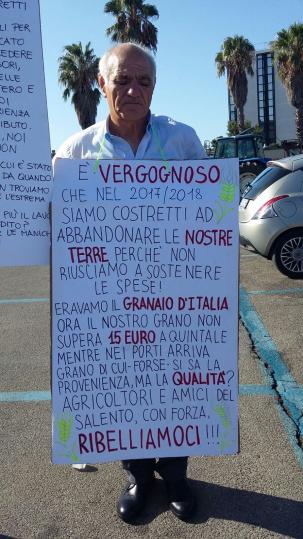 ETTI
LI PER
CATO
EDERE
SORI,
ELLE
TERO E
DI
ERIENZA
TRIBUTO.
HO
CUI È STATO
DA QUANDO
N TROVIAMO
L'ESTREMA
PIÙ IL LAVO
DITO.
LE MANICH
È VERGOGNOSO
CHE NEL 2017/2018
SIAMO COSTRETTI AD
ABBANDONARE LE NOSTRE
TERRE PERCHE' NON
RIUSCIAMO A SOSTENERE
LE SPESE!
ERAVAMO IL GRANAIO D'ITALIA
ORA IL NOSTRO GRANO NON
SUPERA 15 EURO A QUINTALE
MENTRE NEI PORTI ARRIVA
GRANO DI CUI-FORSE-SI SA LA
PROVENIENZA, MA LA QUALITA'?
AGRICOLTORI E AMICI DEL
SALENTO, CON FORZA,
RIBELLIAMOCI!!!